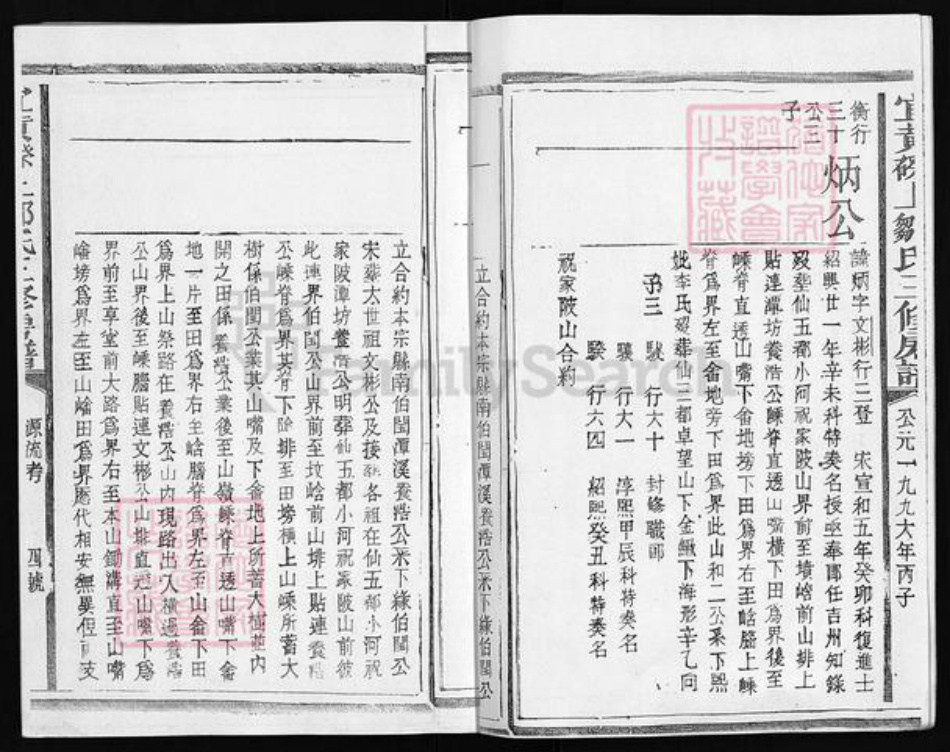 公元一九九六年丙子
衡行
三十
公三
子
炳公
諱炳字文彬行二登 宋宣和五年癸卯科復進士
紹興廿一年辛未科特奏名授廸奉郎任吉州知錄
歿葬仙五都小河祝家陂山界前至墳峆前山排上
貼連潭坊養浩公嵊脊直透山嘴橫下田為界後至
嵊脊直透山嘴下畬地塝下田為界右至峆膪上嵊
脊為界左至畬地旁下田為界此山和二公釆下熙
妣李氏歿葬仙三都卓望山下金鰍下海形辛乙向
子三 駥 行六十 封修職郎
驥 行大一 淳熙甲辰科特奏名
騤 行六四 紹熙癸丑科特奏名
祝家陂山合約
立合約本宗縣南伯閶潭溪養浩公釆下緣伯閶公
立合約本宗縣南伯閶潭溪養浩公釆下緣伯閶公
宋葬太世祖文彬公及接 各祖在仙五都小河祝
家陂潭坊養浩公明葬仙五都小河祝家陂山前彼
此連界伯閶公山界前至坟峆前山排上貼連養浩
公嵊脊為界其脊下除排至田塝橫上山嵊所蓄大
樹係伯閶公業其山嘴及下畬地上所蓄大 並內
開之田係養浩公業後至山嶺嵊脊直透山嘴下畬
地一片至田為界右至峆膪脊為界左至山畬下田
為界上山祭路在養浩公山內現路出入橫過養浩
公山界後至嵊膪貼連文彬公山排直 山嘴下為
界前至享堂前大路為界右至本山鋤溝直至山嘴
崳塝為界左至山崳田為界歷代相安無異但
源流考
四號
FamilySearch